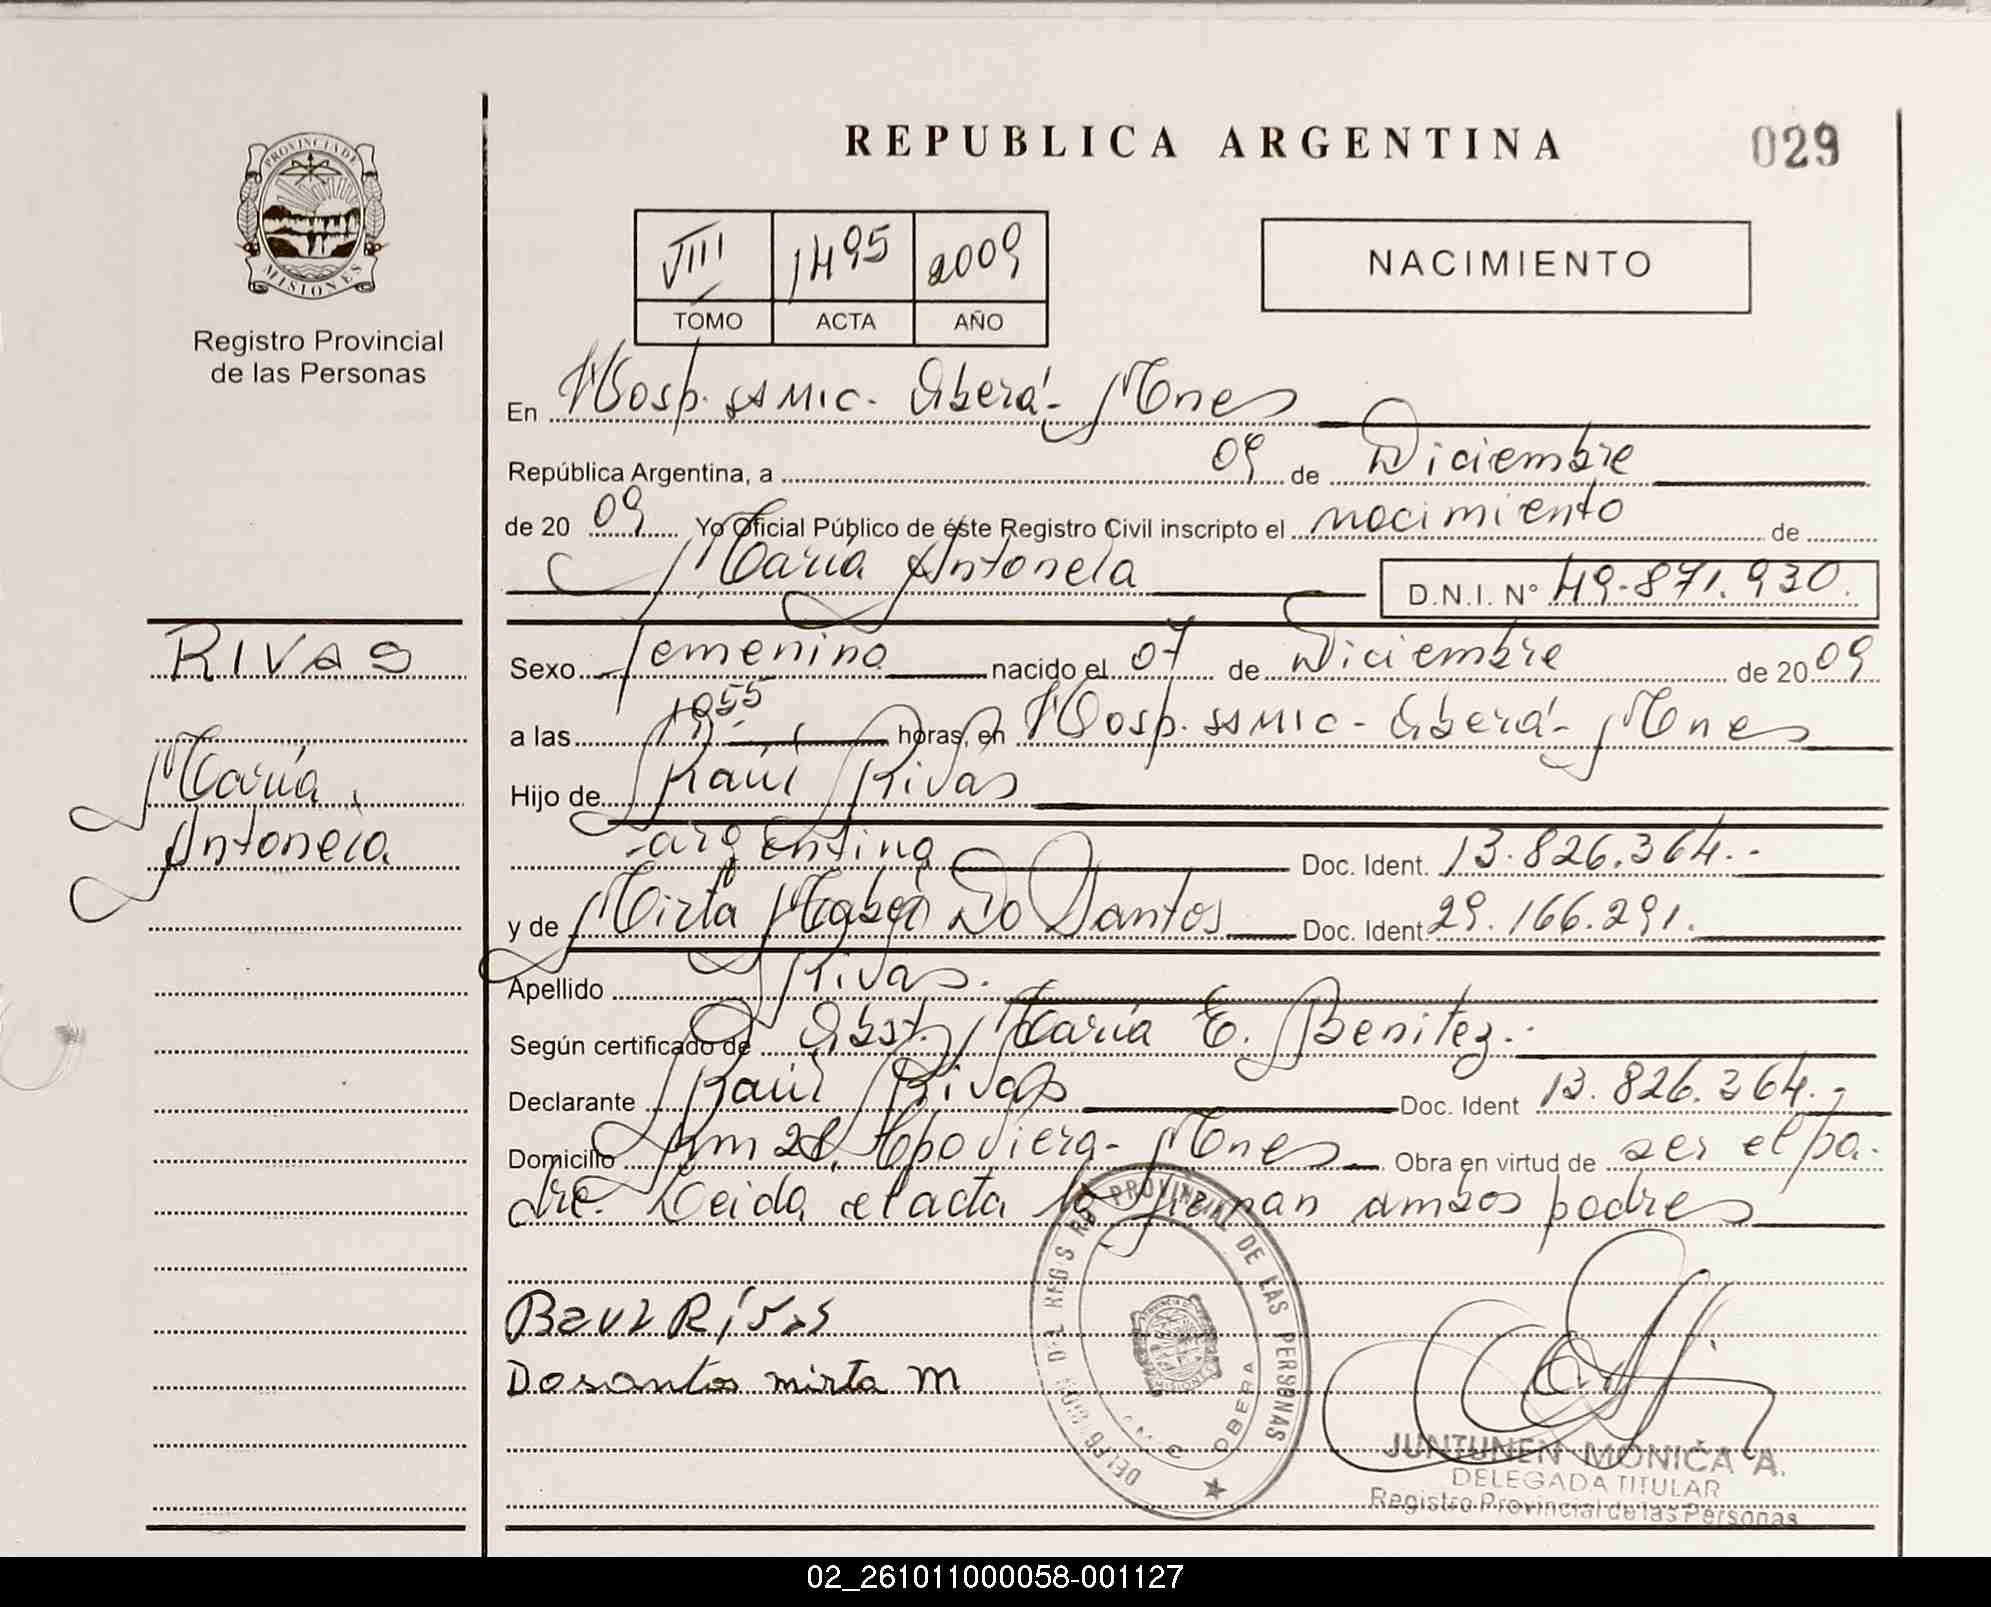 REPUBLICA ARGENTINA
029
PROVINCIA DE
MISIONES
Registro Provincial
de las Personas
VIII 1495 2009
TOMO ACTA AÑO
NACIMIENTO
En Hosp. SAMIC. Oberá - Mnes
República Argentina, a 09 de Diciembre
de 20 09 Yo Oficial Público de éste Registro Civil inscripto el nacimiento de
María Antonela
D.N.I. N° 49.871.930.
RIVAS
María
Antonela
Sexo femenino nacido el 07 de Diciembre de 20 09
a las 1955 horas, en Hosp. SAMIC - Oberá - Mnes
Hijo de Raúl Rivas
argentina Doc. Ident. 13.826.364.-
y de Mirta Mabel Do Santos Doc. Ident. 29.166.291.
Apellido Rivas.
Según certificado de Obst. María E. Benitez.-
Declarante Raúl Rivas Doc. Ident 13.826.364.-
Domicilio Km 28, Apovierá - Mnes Obra en virtud de ser el pa-
dre. Leida el acta la firman ambos padres
Raul Rivas
Dosantos mirta M
PROVINCIAL DE LAS PERSONAS
OBERA
JUNTUNEN MONICA A.
DELEGADA TITULAR
Registro Provincial de las Personas
02_261011000058-001127